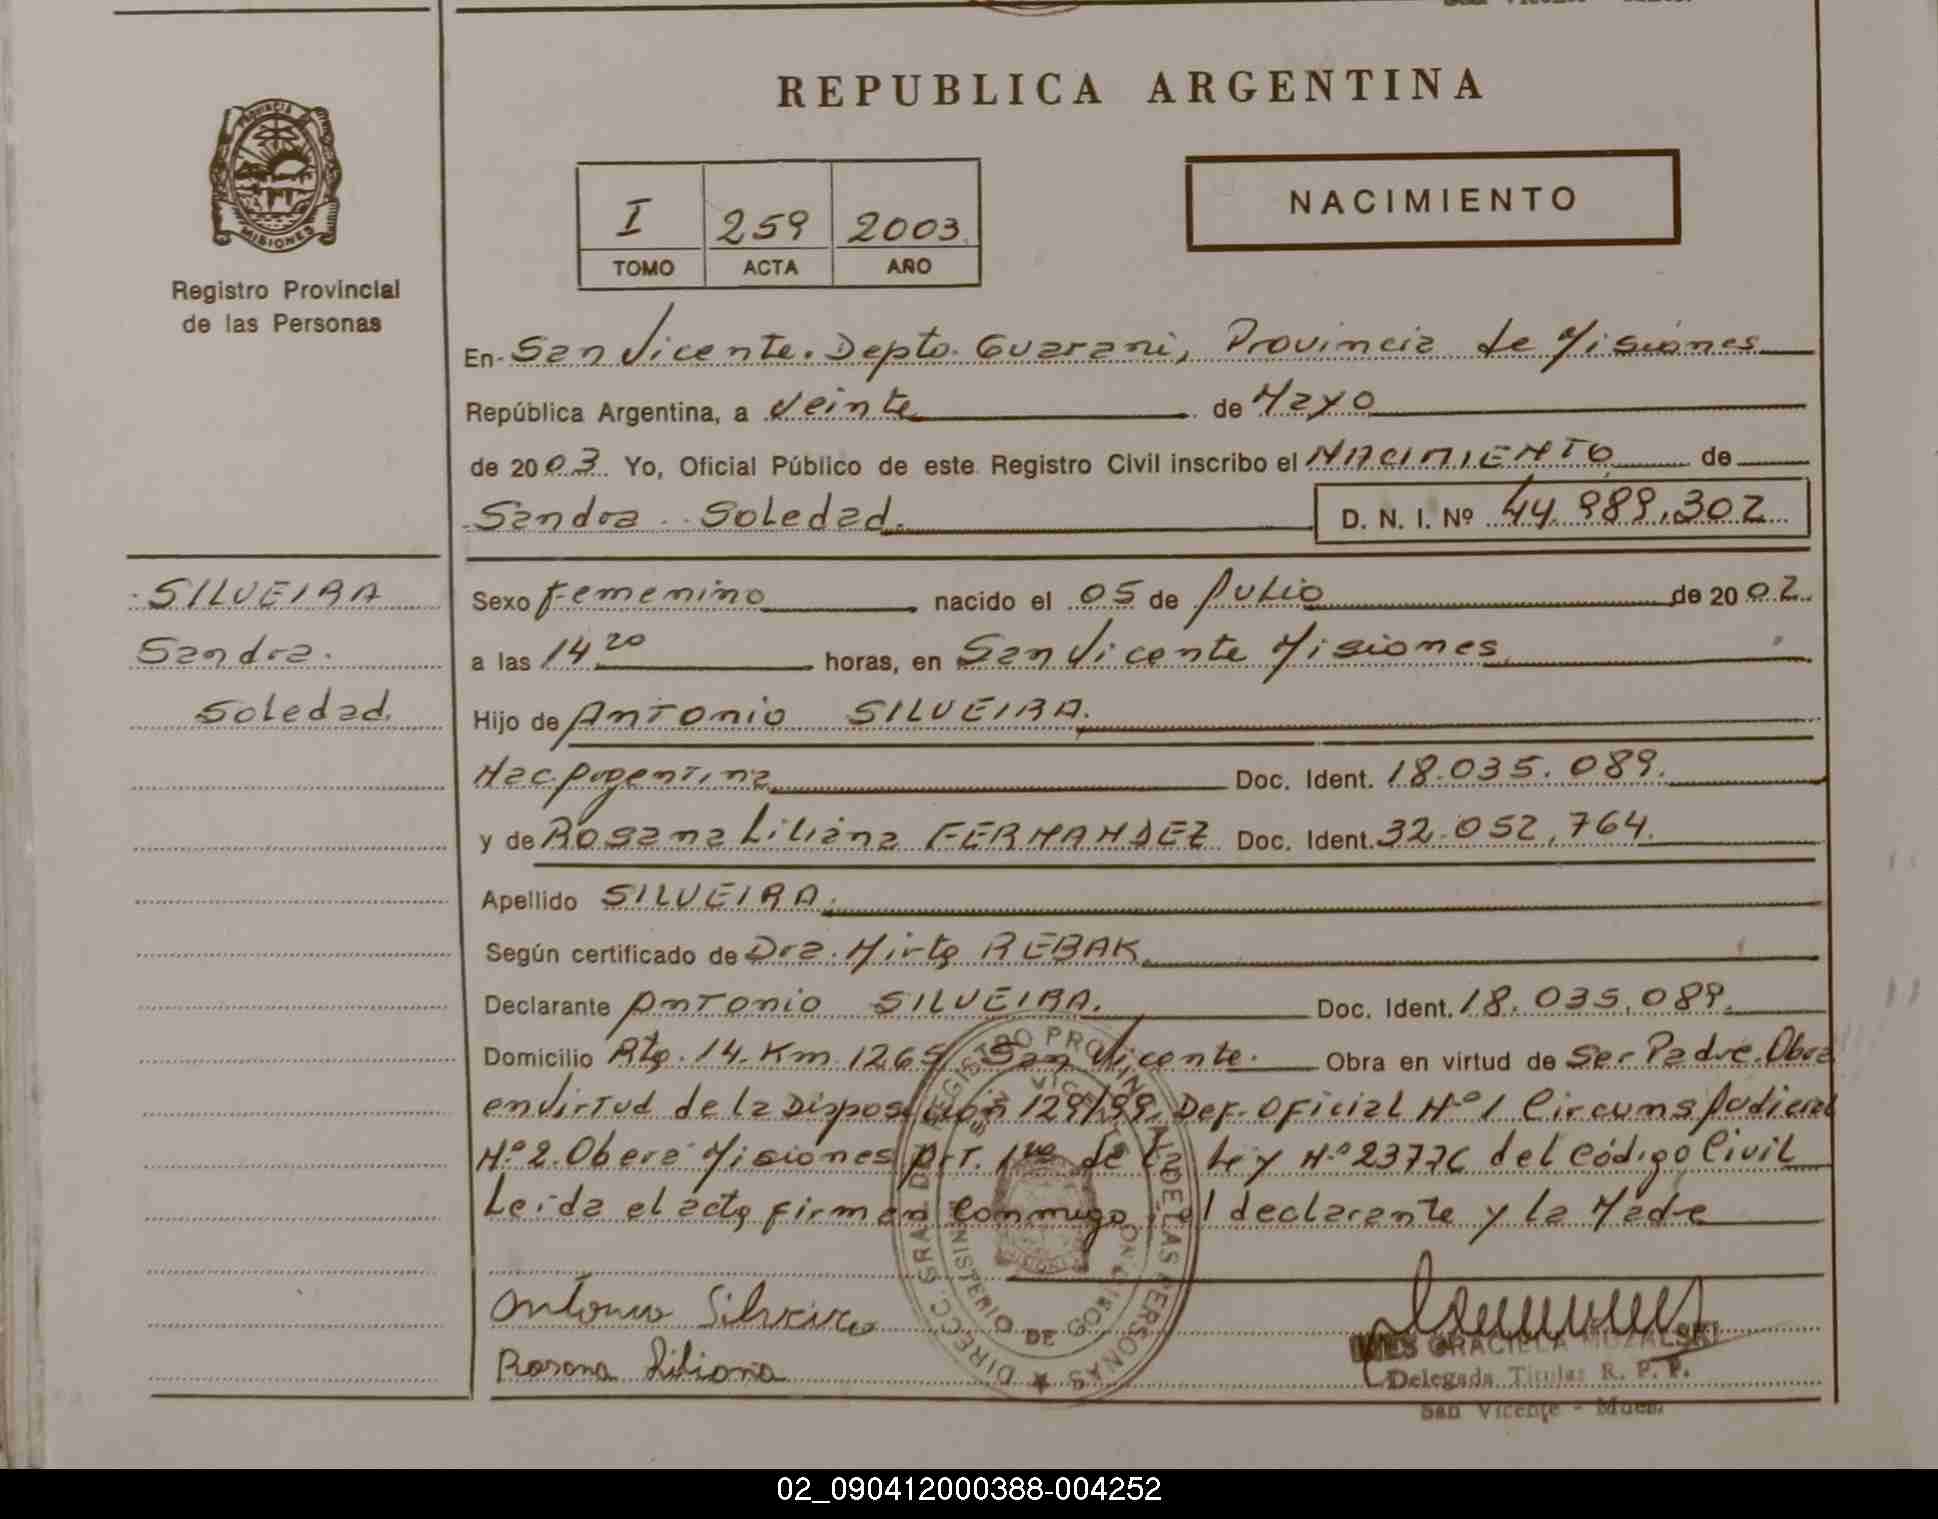 REPUBLICA ARGENTINA
PROVINCIA
MISIONES
Registro Provincial
de las Personas
I 259 2003
TOMO ACTA AÑO
NACIMIENTO
En San Vicente. Depto. Guarani, Provincia de Misiones
República Argentina, a Veinte de Mayo
de 2003 Yo, Oficial Público de este Registro Civil inscribo el NACIMIENTO de
Sandra Soledad. D. N. I. Nº 44.989.302
SILVEIRA
Sandra.
Soledad.
Sexo femenino nacido el 05 de Julio de 2002
a las 14 20 horas, en San Vicente Misiones
Hijo de Antonio SILVEIRA.
Nac. Argentina Doc. Ident. 18.035.089.
y de Rosana Liliana FERNANDEZ Doc. Ident. 32.052.764.
Apellido SILVEIRA.
Según certificado de Dra. Mirta REBAK
Declarante Antonio SILVEIRA. Doc. Ident. 18.035.089.
Domicilio Rta. 14. Km 1265 San Vicente. Obra en virtud de Ser Padre. Obra
en virtud de la Disposicion 129/99. Def. Oficial Nº 1 Circuns Judicial
Nº 2. Obera Misiones Art. 1ro de la Ley Nº 23776 del Código Civil
Leida el acta firman conmigo el declarante y la Madre
Antonio Silveira
Rosana Liliana
DIRECC. GRAL. DEL REGISTRO PROVINCIAL DE LAS PERSONAS
SAN VICENTE
MINISTERIO DE GOBIERNO
INES GRACIELA MUZALSKI
Delegada Titular R. P. P.
San Vicente - Mnes.
02_090412000388-004252